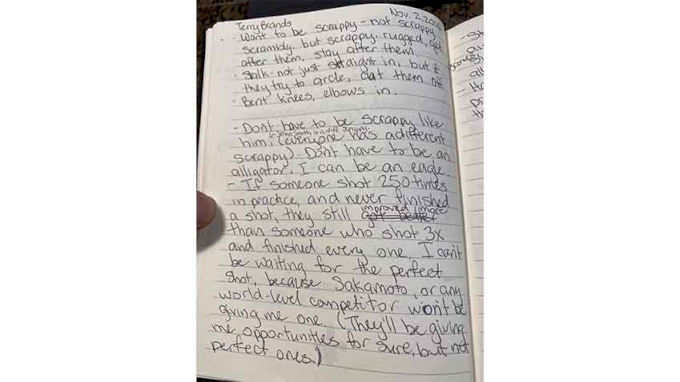 Terry Brands
Nov. 2, 20
- Want to be scrappy - not scrappy,
scrambly, but scrappy, rugged, get
after them, stay after them
- Stalk - not just straight in, but if
they try to circle, cut them off
- Bent knees, elbows in.
- Don't have to be scrappy like
him. (everyone has a different
scrappy). Don't have to be an
alligator. I can be an eagle.
- If someone shot 250 times
in practice, and never finished
a shot, they still improved more
than someone who shot 3x
and finished every one. I can't
be waiting for the perfect
shot, because Sakamoto, or any
world-level competitor won't be
giving me one. (They'll be giving
me opportunities for sure, but not
perfect ones.)